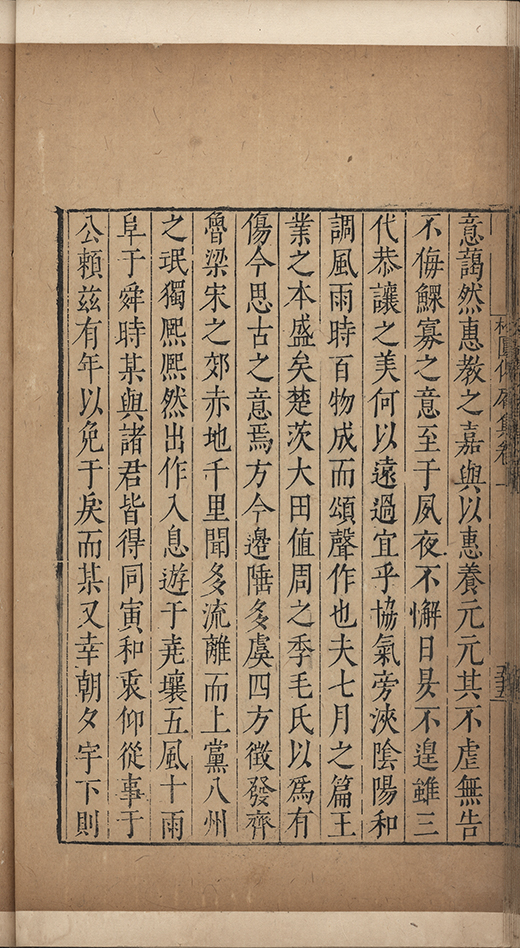 意藹然惠教之嘉與以惠養元元其不虐無告
不侮鰥寡之意至于夙夜不懈日昃不遑雖三
代恭讓之美何以遠過宜乎協氣旁浹陰陽和
調風雨時百物成而頌聲作也夫七月之篇王
業之本盛矣楚茨大田值周之季毛氏以爲有
傷今思古之意焉方今邊陲多虞四方徵發齊
魯梁宋之郊赤地千里聞多流離而上黨八州
之珉獨熈熈然出作入息遊于堯壤五風十雨
阜于舜時某與諸君皆得同寅和衷仰從事于
公賴茲有年以免于戾而某又幸朝夕宇下則